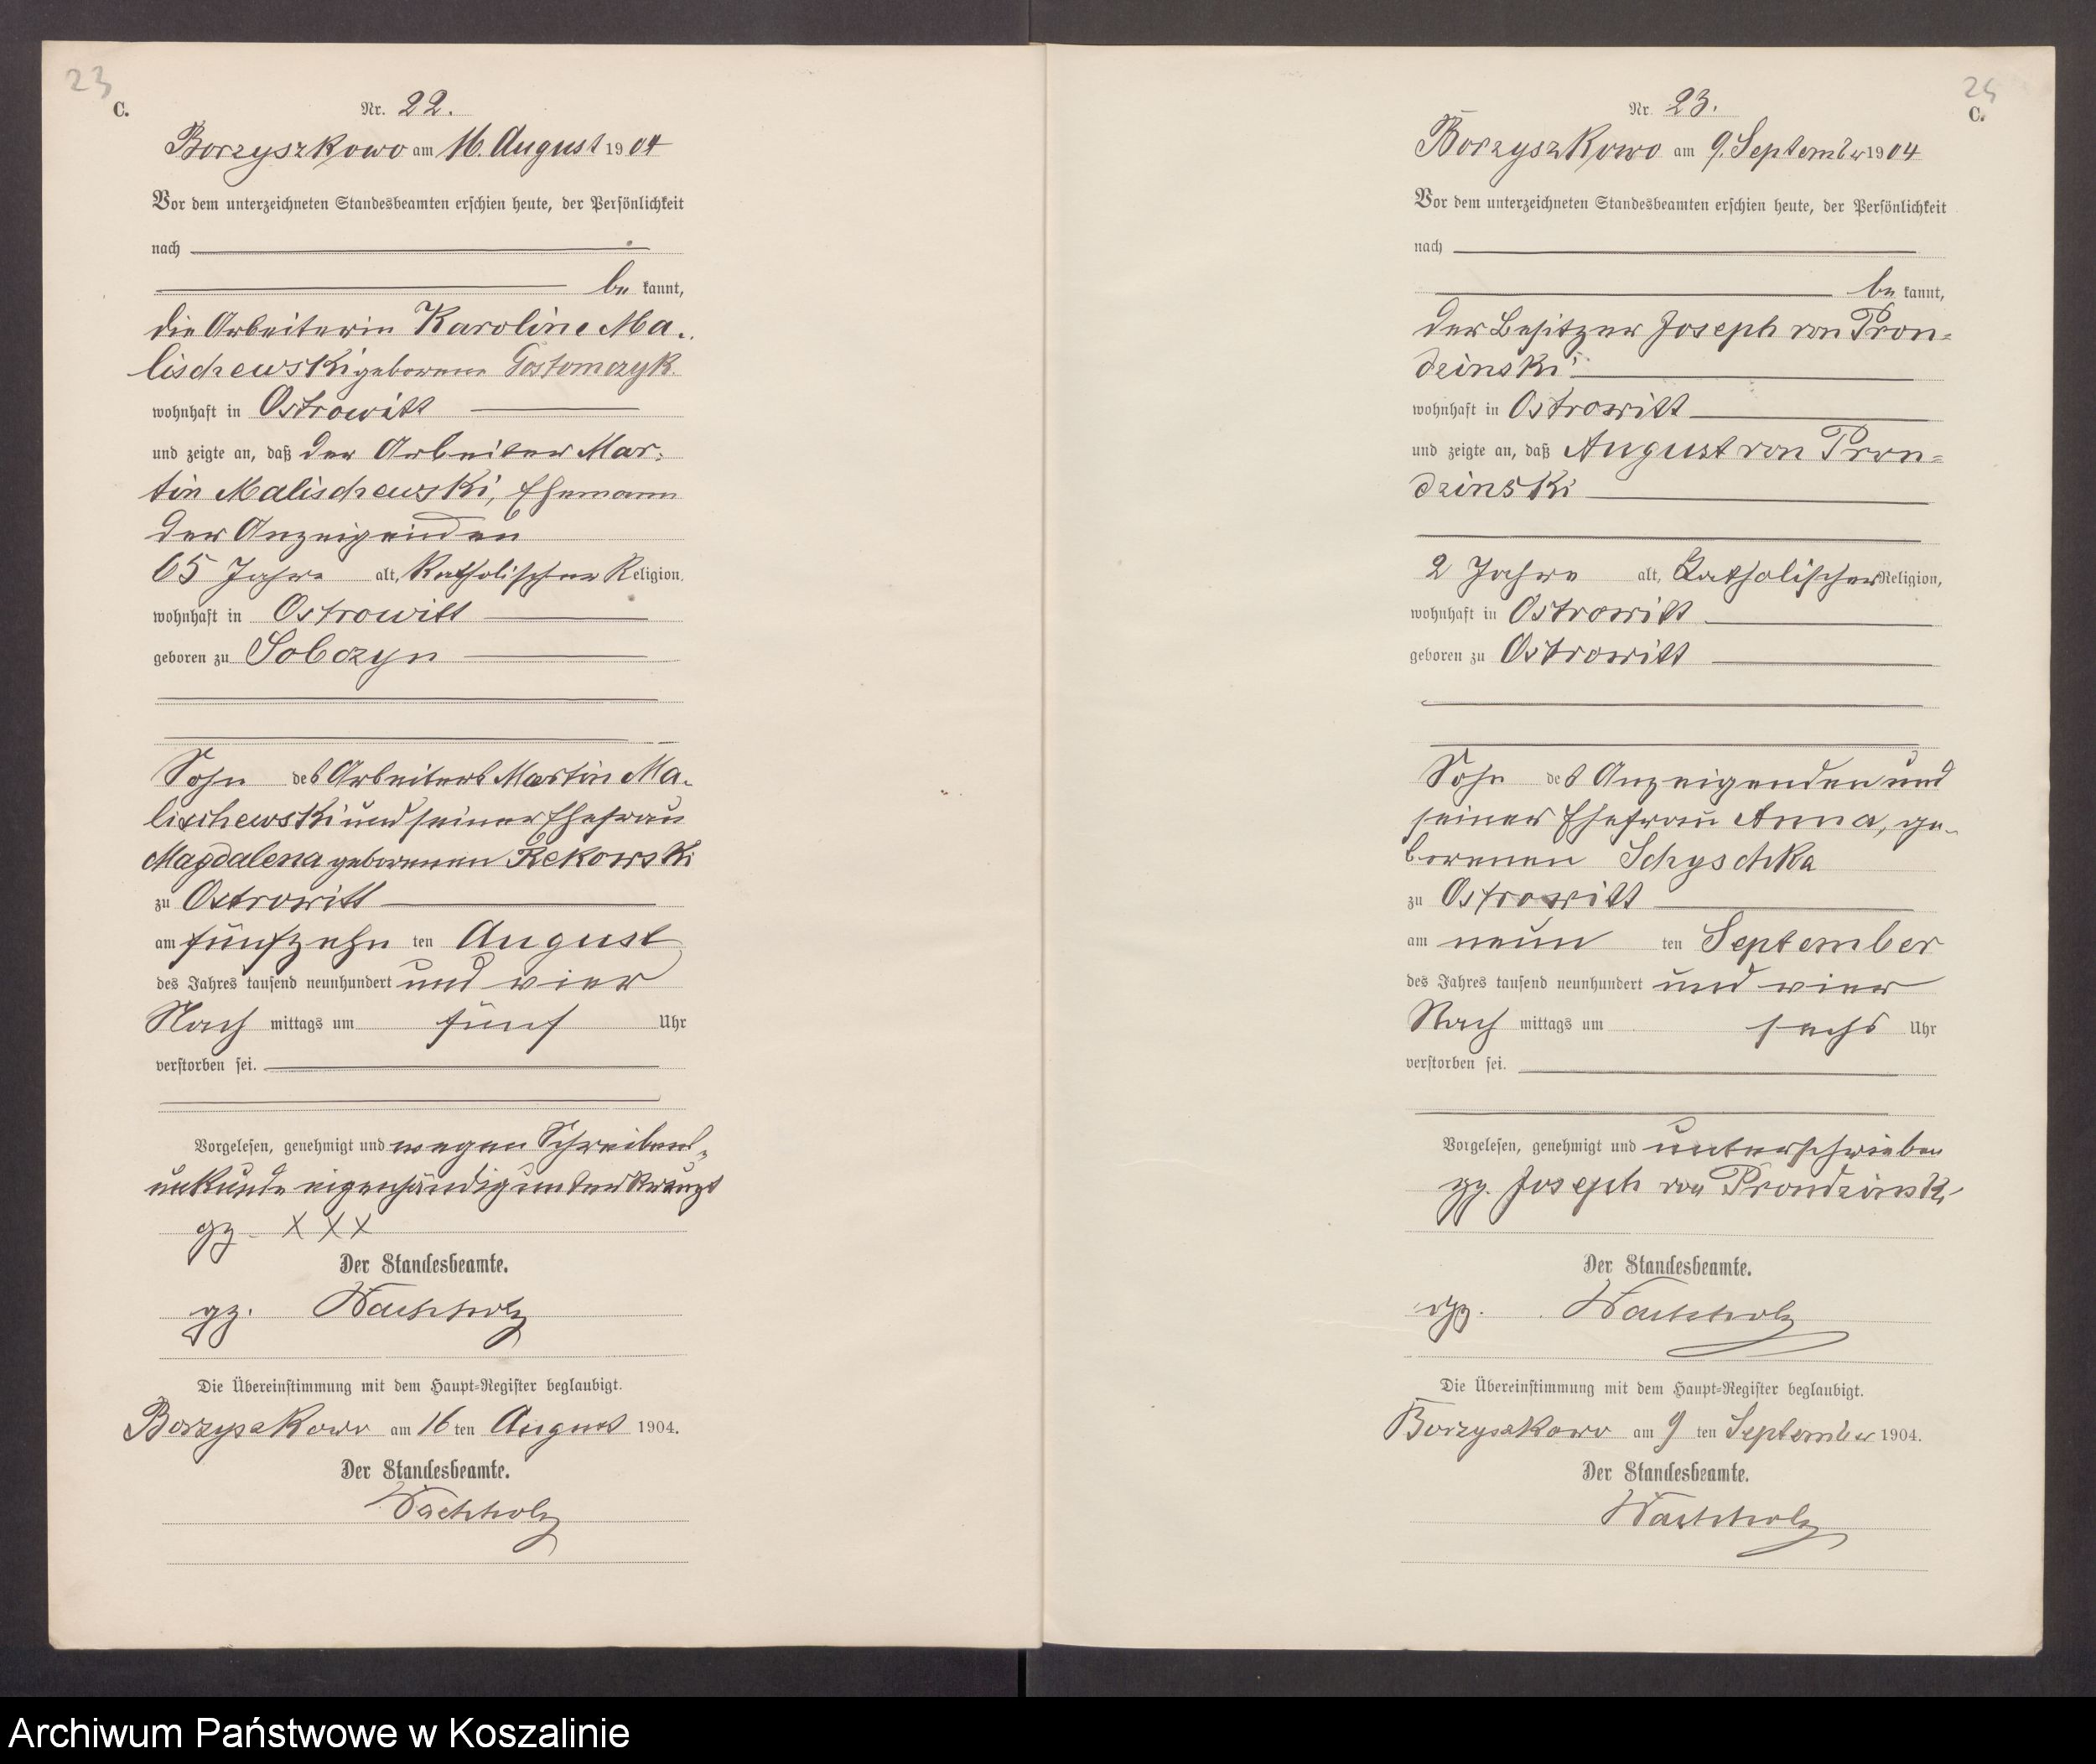 23
C.
Nr. 22.
Borzyszkowo am 16. August 1904
Vor dem unterzeichneten Standesbeamten erschien heute, der Persönlichkeit
nach
be kannt,
die Arbeiterin Karoline Ma-
lischewski geborene Gostomczyk.
wohnhaft in Ostrowitt
und zeigte an, daß der Arbeiter Mar-
tin Malischewski, Ehemann
der Anzeigenden
65 Jahre alt, katholischer Religion,
wohnhaft in Ostrowitt
geboren zu Sobczyn
Sohn des Arbeiters Martin Ma-
lischewski und seiner Ehefrau
Magdalena geborenen Rekowski
zu Ostrowitt
am fünfzehn ten August
des Jahres tausend neunhundert und vier
Nach mittags um fünf Uhr
verstorben sei.
Vorgelesen, genehmigt und wegen Schreibens-
unkunde eigenhändig unterkreuzt
gz. X X X
Der Standesbeamte.
gz. Wachholz
Die Übereinstimmung mit dem Haupt-Register beglaubigt.
Borzyszkowo am 16 ten August 1904.
Der Standesbeamte.
Wachholz
C.
Nr. 23.
Borzyszkowo am 9. September 1904
Vor dem unterzeichneten Standesbeamten erschien heute, der Persönlichkeit
nach
be kannt,
der Besitzer Joseph von Pron-
dzinski
wohnhaft in Ostrowitt
und zeigte an, daß August von Pron-
dzinski
2 Jahre alt, katholischer Religion,
wohnhaft in Ostrowitt
geboren zu Ostrowitt
Sohn des Anzeigenden und
seiner Ehefrau Anna, ge-
borenen Schyschka
zu Ostrowitt
am neun ten September
des Jahres tausend neunhundert und vier
Nach mittags um sechs Uhr
verstorben sei.
Vorgelesen, genehmigt und unterschrieben
gz. Joseph von Prondzinski
Der Standesbeamte.
gz. Wachholz
Die Übereinstimmung mit dem Haupt-Register beglaubigt.
Borzyszkowo am 9 ten September 1904.
Der Standesbeamte.
Wachholz
Archiwum Państwowe w Koszalinie